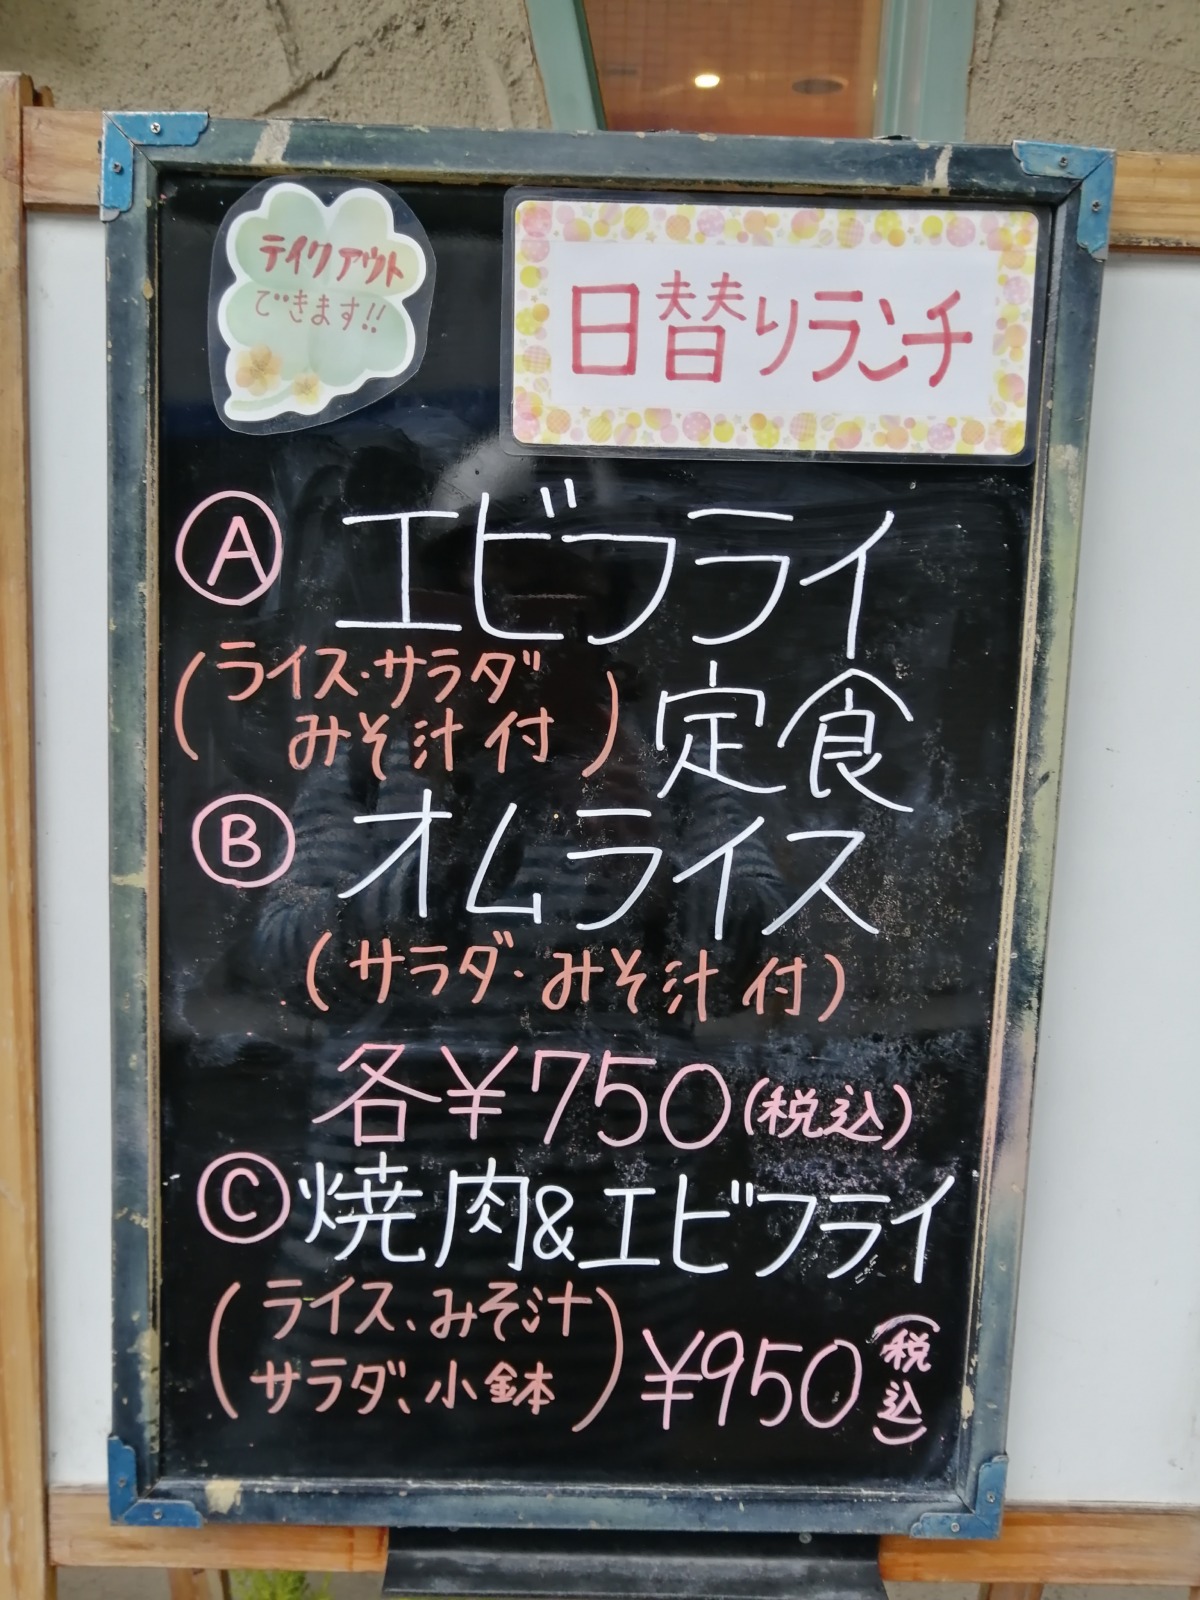 テイクアウト
できます!!
日替りランチ
Ⓐ エビフライ
定食
(ライス・サラダ
みそ汁付)
Ⓑ オムライス
(サラダ・みそ汁付)
各¥750(税込)
Ⓒ 焼肉&エビフライ
(ライス、みそ汁
サラダ、小鉢)
¥950(税込)